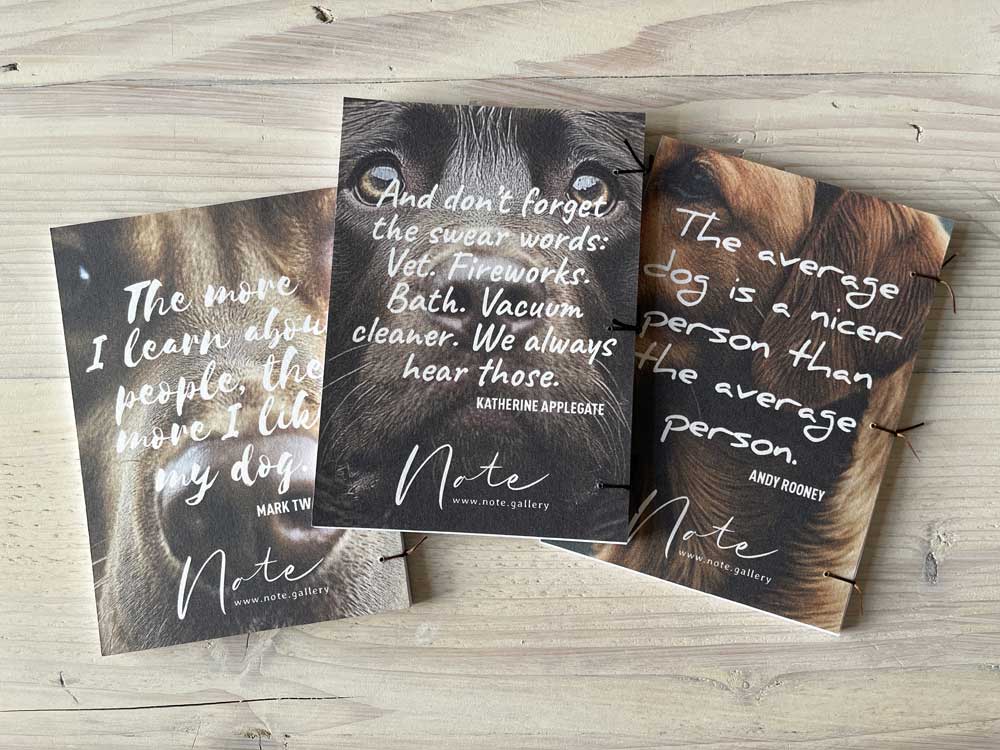 The more
I learn abou
people, the
more I lik
my dog.
MARK TW
Note
www.note.gallery
And don't forget
the swear words:
Vet. Fireworks.
Bath. Vacuum
cleaner. We always
hear those.
KATHERINE APPLEGATE
Note
www.note.gallery
The average
dog is a nicer
person than
the average
person.
ANDY ROONEY
Note
www.note.gallery